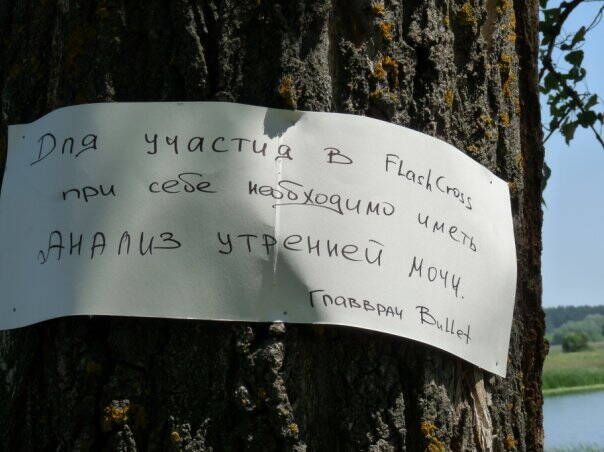 Для участия в FLashCross
при себе необходимо иметь
АНАЛИЗ утренней мочи.
Главврач Bullet